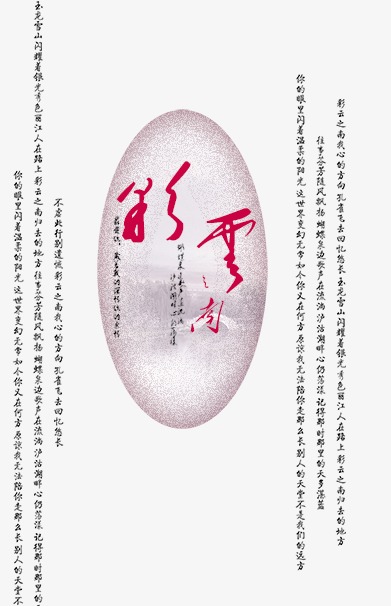 彩云之南我心的方向 孔雀飞去回忆悠长 玉龙雪山闪耀着银光 秀色丽江人在路上 彩云之南归去的地方
往事芬芳随风飘扬 蝴蝶泉边歌声在流淌 泸沽湖畔心仍荡漾 记得那时那里的天多湛蓝
你的眼里闪着温柔的阳光 这世界变幻无常 如今你又在何方 原谅我无法陪你走那么长 别人的天堂不是我们的远方
彩雲之南
不虚此行别遗憾 彩云之南我心的方向 孔雀飞去回忆悠长
玉龙雪山闪耀着银光 秀色丽江人在路上 彩云之南归去的地方 往事芬芳随风飘扬 蝴蝶泉边歌声在流淌 泸沽湖畔心仍荡漾 记得那时那里的天
你的眼里闪着温柔的阳光 这世界变幻无常 如今你又在何方 原谅我无法陪你走那么长 别人的天堂不